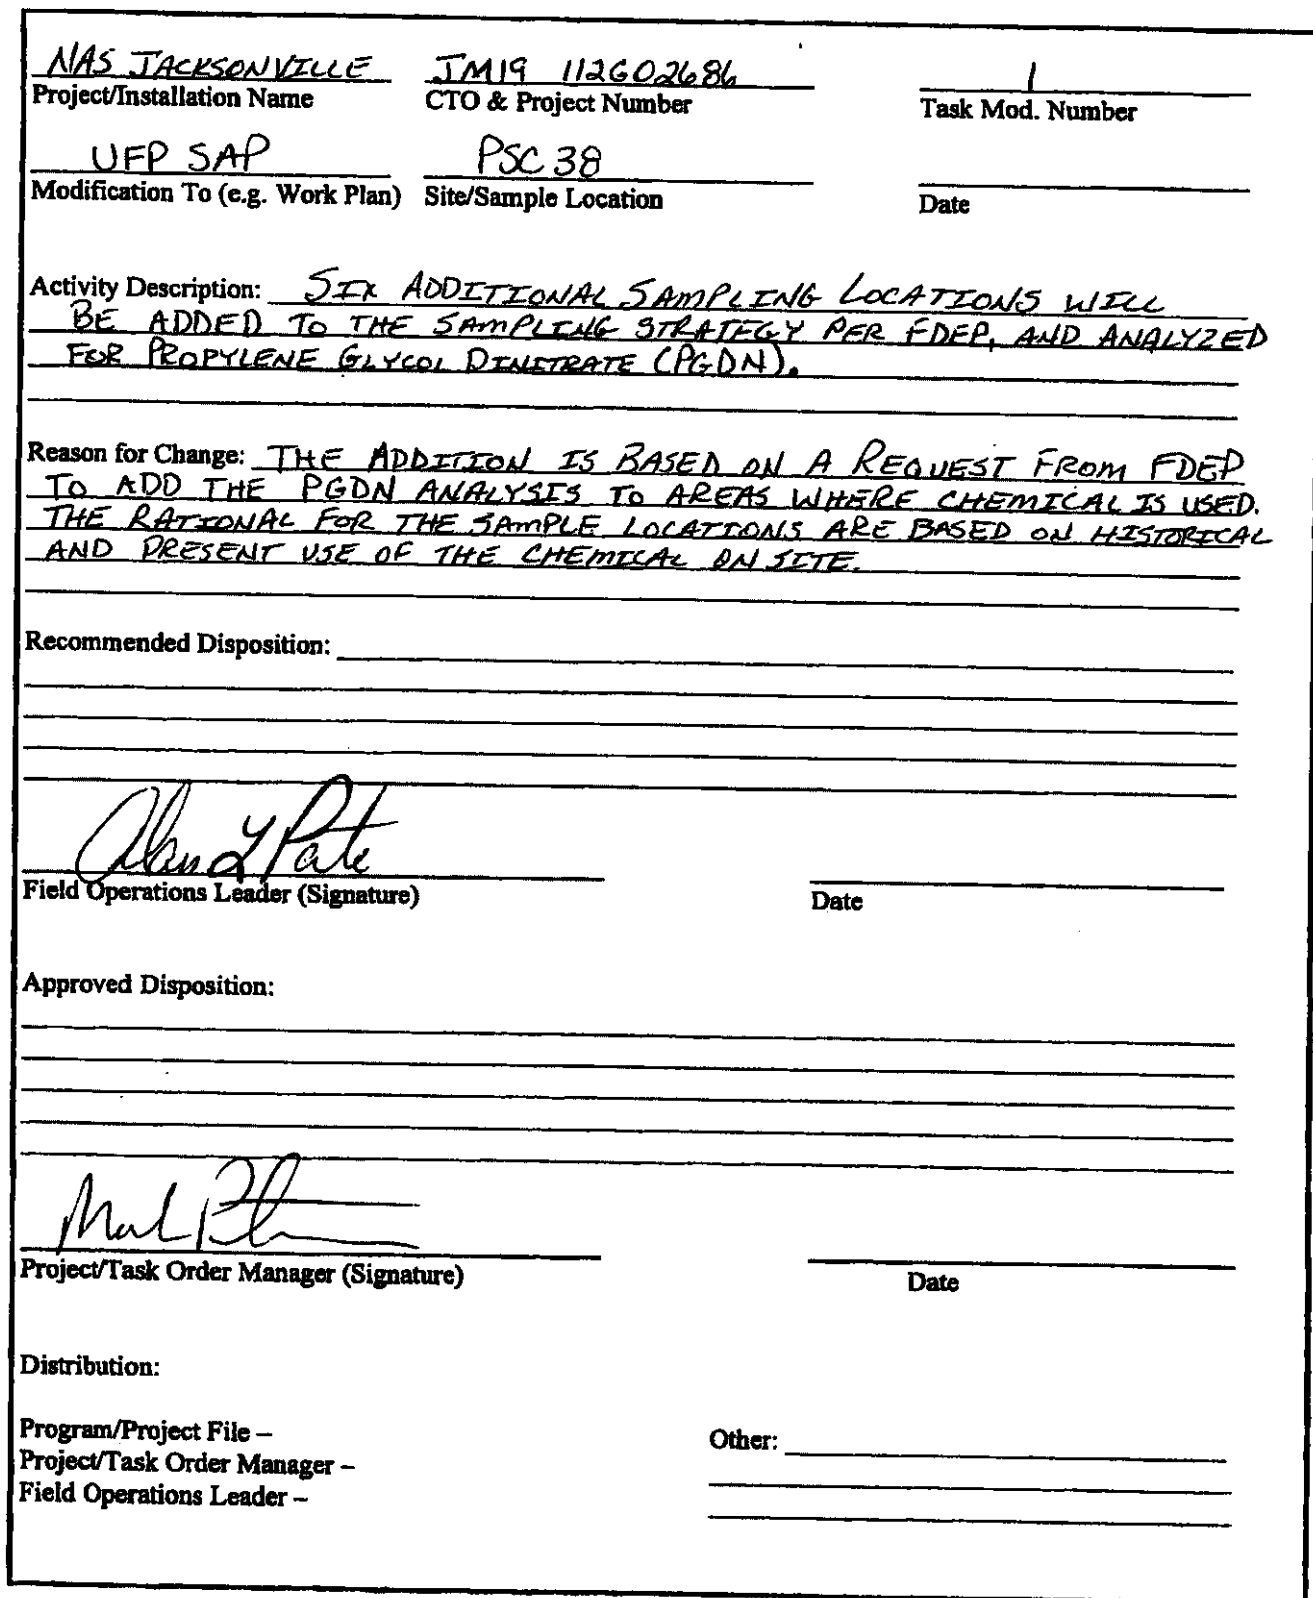 NAS JACKSONVILLE JM19 112G02686 1
Project/Installation Name CTO & Project Number Task Mod. Number
UFP SAP PSC 38
Modification To (e.g. Work Plan) Site/Sample Location Date
Activity Description: SIX ADDITIONAL SAMPLING LOCATIONS WILL
BE ADDED TO THE SAMPLING STRATEGY PER FDEP, AND ANALYZED
FOR PROPYLENE GLYCOL DINITRATE (PGDN).
Reason for Change: THE ADDITION IS BASED ON A REQUEST FROM FDEP
TO ADD THE PGDN ANALYSIS TO AREAS WHERE CHEMICAL IS USED.
THE RATIONAL FOR THE SAMPLE LOCATIONS ARE BASED ON HISTORICAL
AND PRESENT USE OF THE CHEMICAL ON SITE.
Recommended Disposition:
Alan L Pate
Field Operations Leader (Signature) Date
Approved Disposition:
Mark
Project/Task Order Manager (Signature) Date
Distribution:
Program/Project File –
Other:
Project/Task Order Manager –
Field Operations Leader –